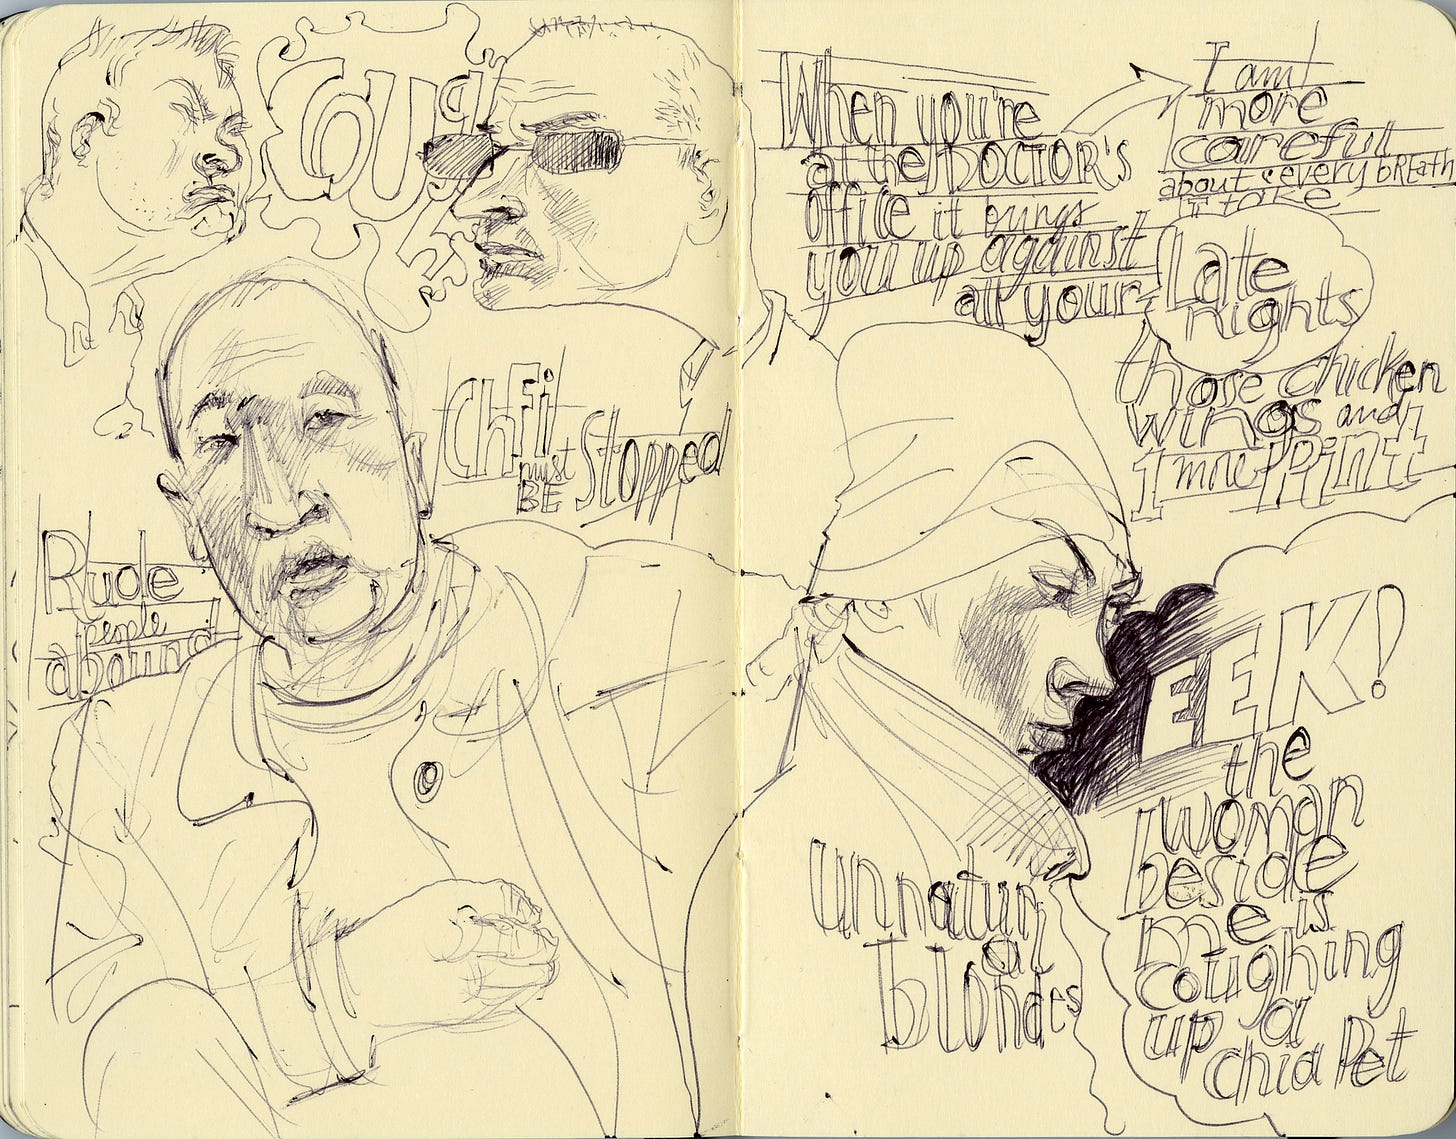 Coughs
Chfil
must
BE Stopped
Rude
people
abound
When you're
at the DOCTOR's
office it brings
you up against
all your
Late
nights
those chicken
wings and
I am
more
carefull
about every brEath
I take
EEK!
the
woman
beside
me is
coughing
up a
chia Pet
unnatur
al
blondes